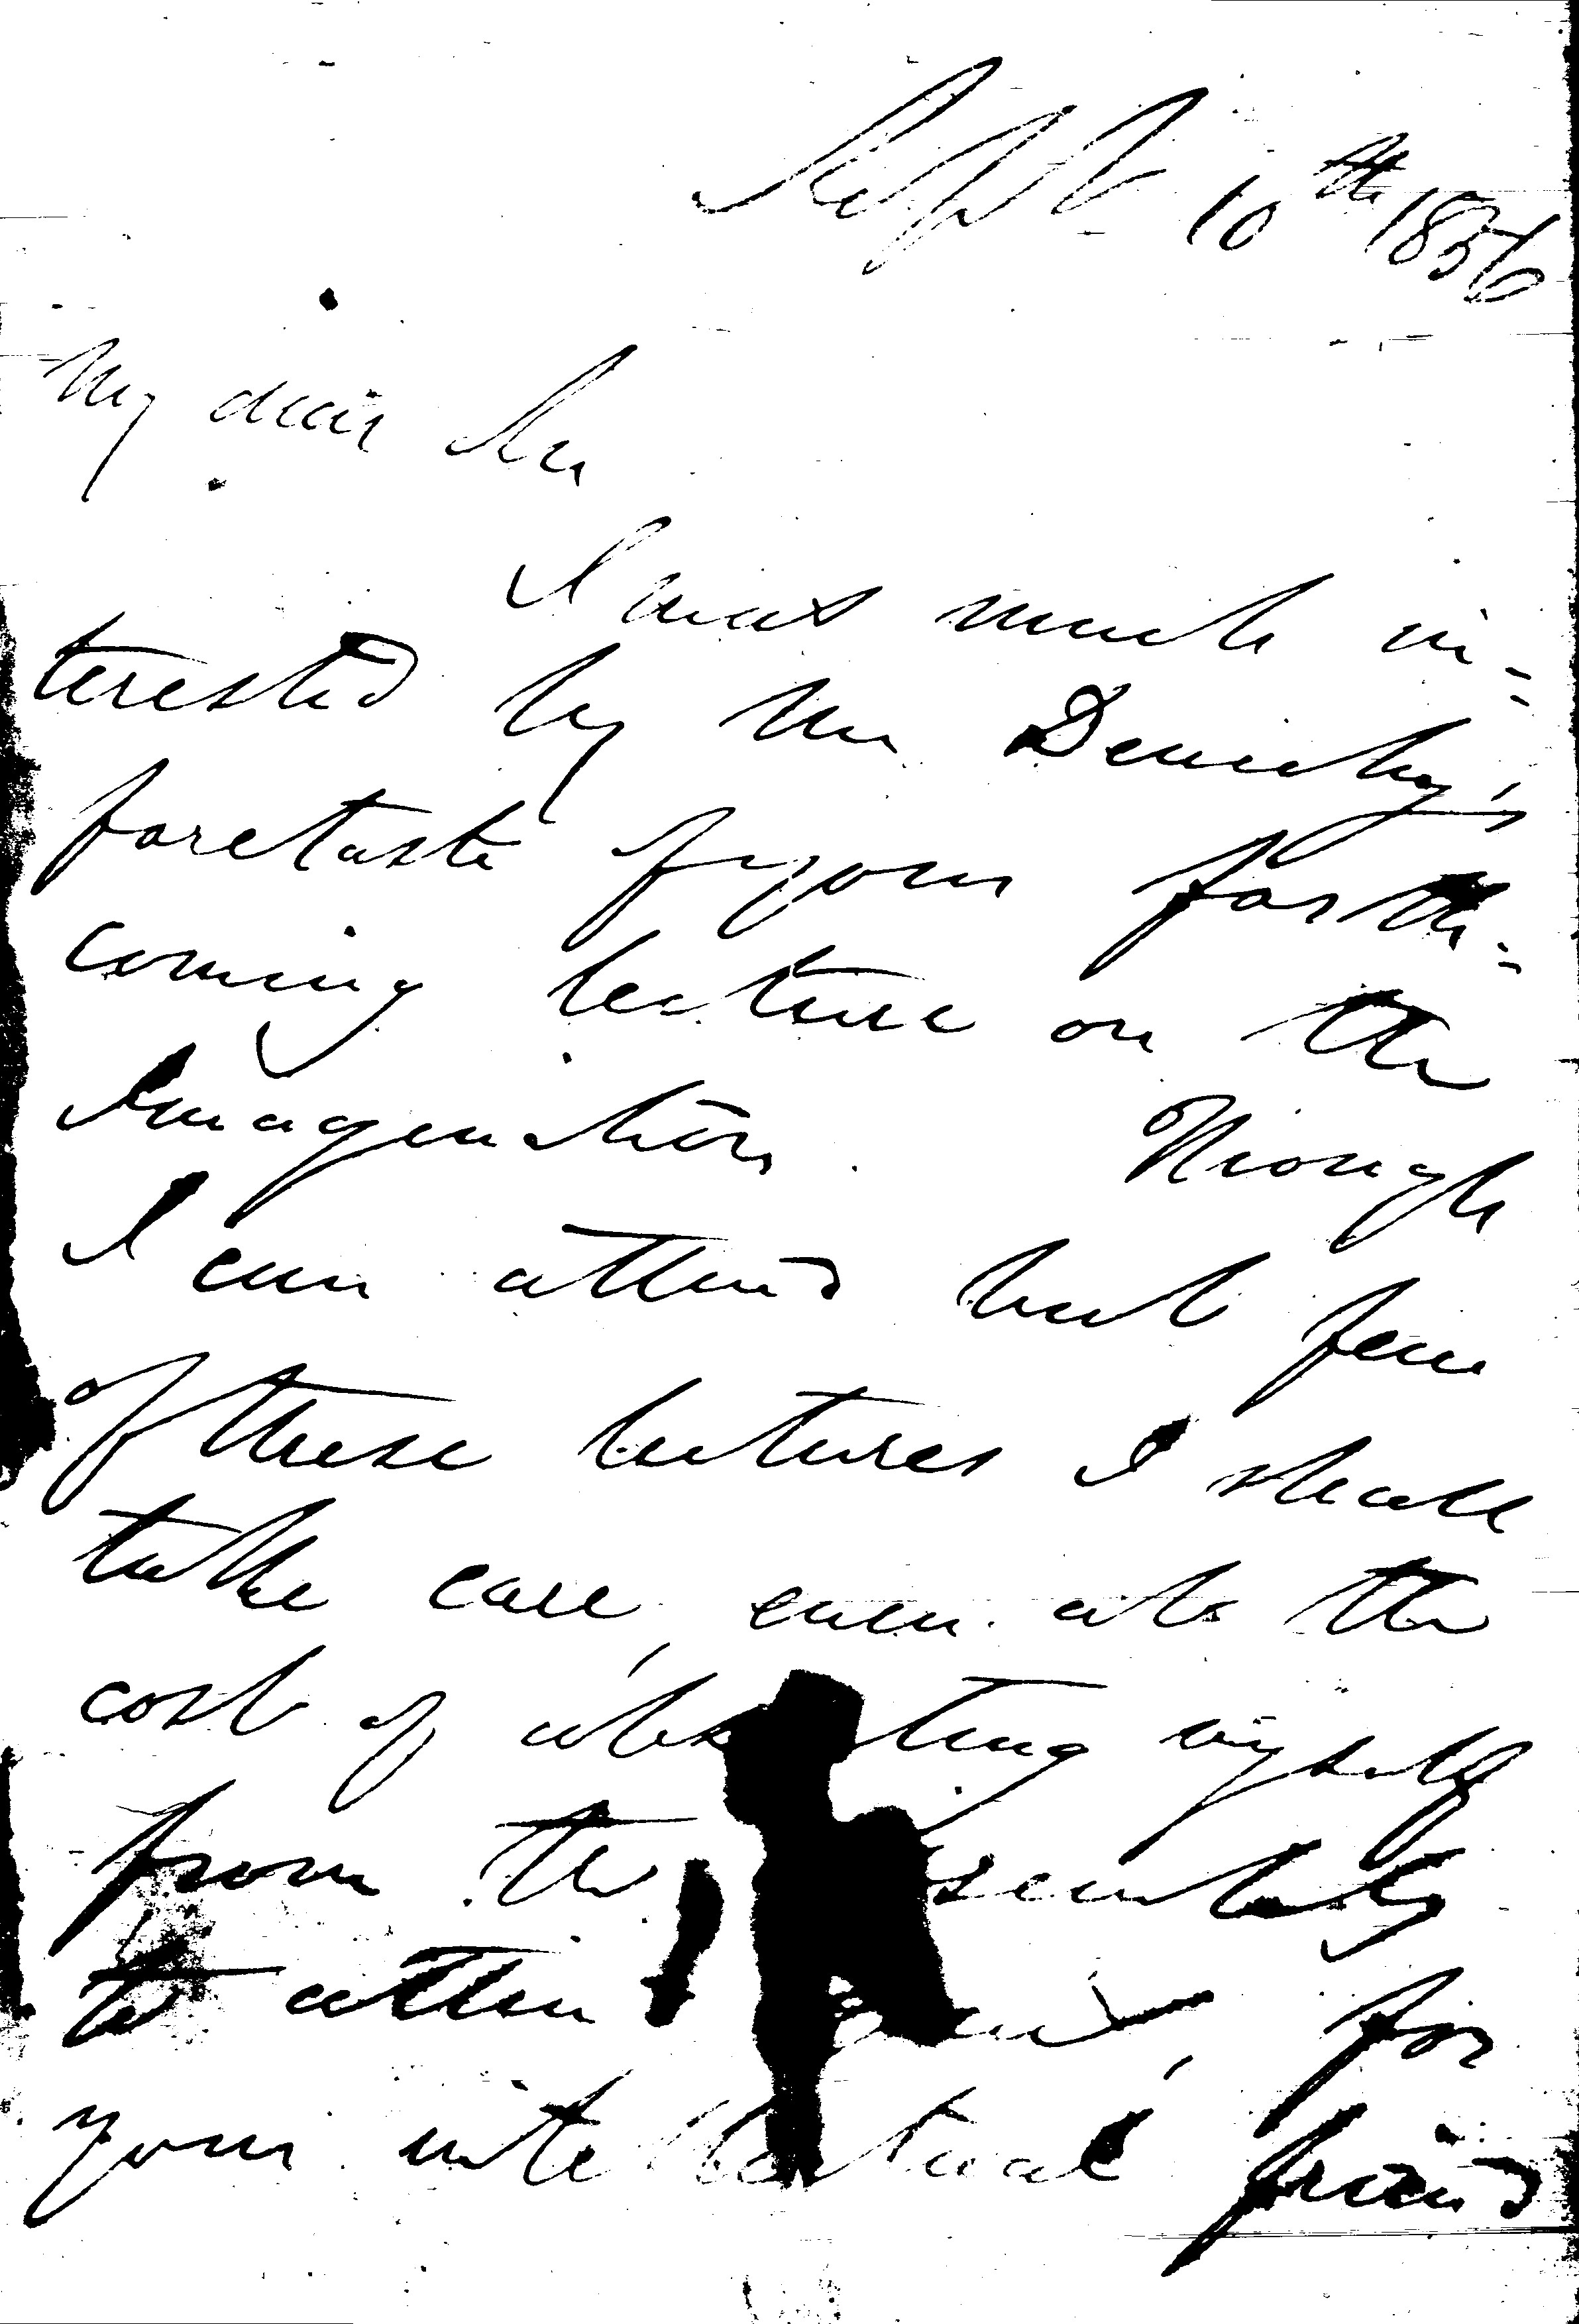 Sept 10th 1856
My dear Sir
I was much in-
terested by Mr Deniehy's
foretaste of your forth-
coming lecture on the
Imagination. Though
I can attend but few
of these lectures I shall
take care, even at the
cost of absenting myself
from the Assembly
to attend, for
your intellectual friend